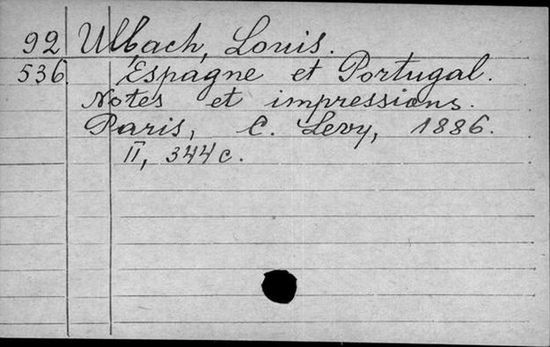 92 Ulbach, Louis.
536 Espagne et Portugal.
Notes et impressions.
Paris, C. Levy, 1886.
II, 344 c.